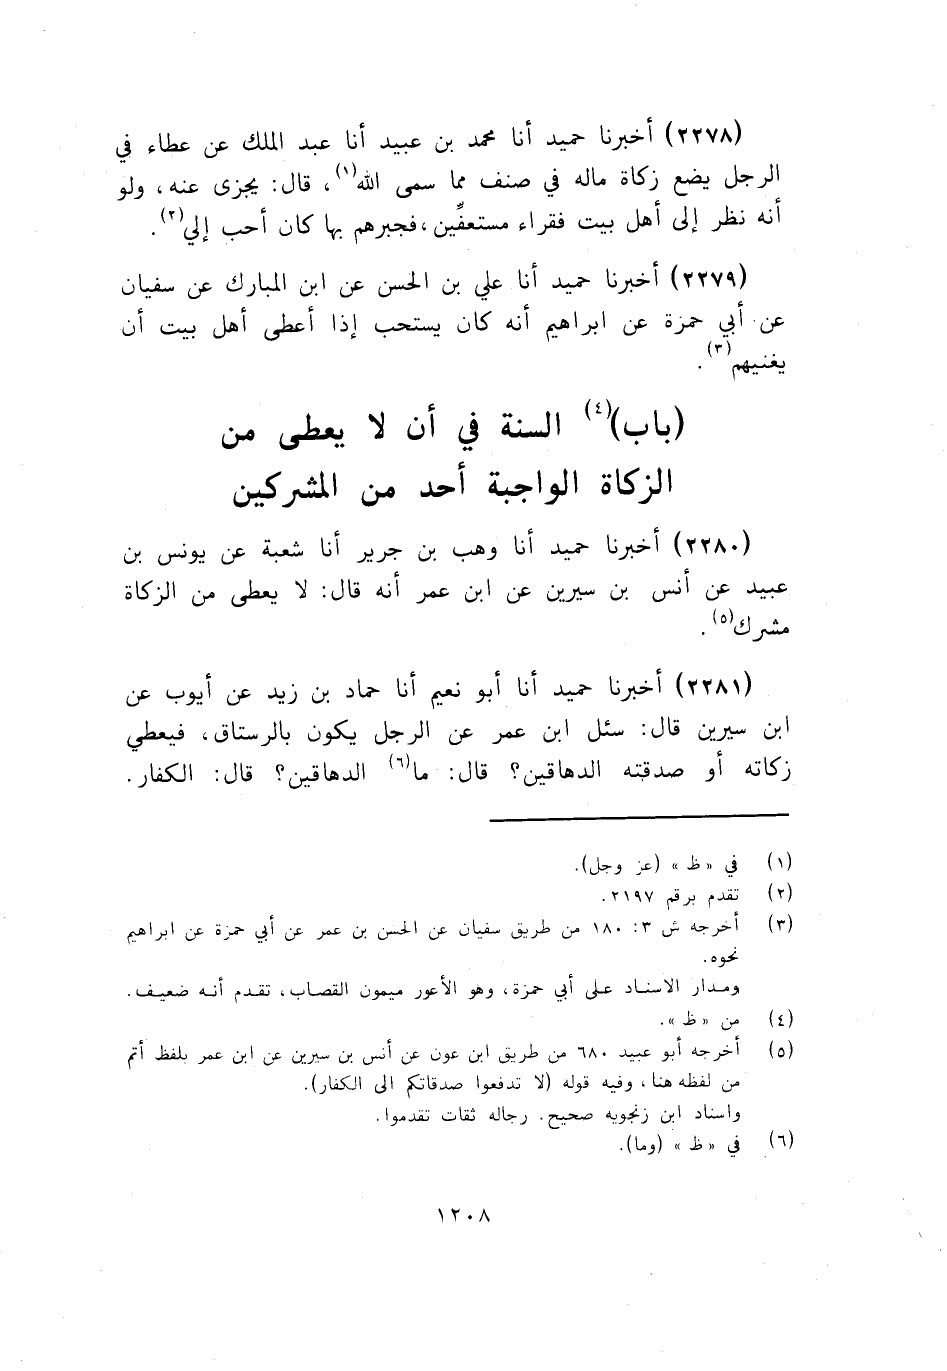 (٢٢٧٨) أخبرنا حميد أنا محمد بن عبيد أنا عبد الملك عن عطاء في
الرجل يضع زكاة ماله في صنف مما سمى الله(١)، قال: يجزى عنه، ولو
أنه نظر إلى أهل بيت فقراء مستعفِّين، فجبرهم بها كان أحب إلي(٢).
(٢٢٧٩) أخبرنا حميد أنا علي بن الحسن عن ابن المبارك عن سفيان
عن أبي حمزة عن ابراهيم أنه كان يستحب إذا أعطى أهل بيت أن
يغنيهم(٣).
(باب)(٤) السنة في أن لا يعطى من
الزكاة الواجبة أحد من المشركين
(٢٢٨٠) أخبرنا حميد أنا وهب بن جرير أنا شعبة عن يونس بن
عبيد عن أنس بن سيرين عن ابن عمر أنه قال: لا يعطى من الزكاة
مشرك(٥).
(٢٢٨١) أخبرنا حميد أنا أبو نعيم أنا حماد بن زيد عن أيوب عن
ابن سيرين قال: سئل ابن عمر عن الرجل يكون بالرستاق، فيعطي
زكاته أو صدقته الدهاقين؟ قال: ما(٦) الدهاقين؟ قال: الكفار.
(١) في « ظ » (عز وجل).
(٢) تقدم برقم ٢١٩٧.
(٣) أخرجه ش ٣: ١٨٠ من طريق سفيان عن الحسن بن عمر عن أبي حمزة عن ابراهيم
نحوه.
ومدار الاسناد على أبي حمزة، وهو الأعور ميمون القصاب، تقدم أنه ضعيف.
(٤) من « ظ ».
(٥) أخرجه أبو عبيد ٦٨٠ من طريق ابن عون عن أنس بن سيرين عن ابن عمر بلفظ أتم
من لفظه هنا، وفيه قوله (لا تدفعوا صدقاتكم الى الكفار).
واسناد ابن زنجويه صحيح. رجاله ثقات تقدموا.
(٦) في « ظ » (وما).
١٢٠٨